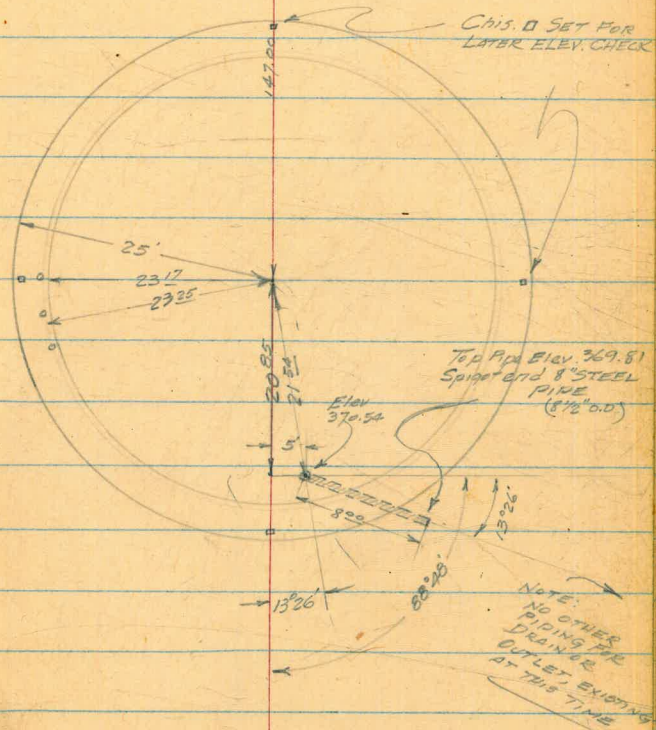 Chis. □ SET FOR
LATER ELEV. CHECK
147.00
25'
23 17
23 25
20.85
Top Pipe Elev. 369.81
Spigot end 8" STEEL
PIPE
(8½" O.D.)
Elev
370.54
5'
8 00
13°26'
13°26'
88°48'
NOTE:
NO OTHER
PIPING FOR
DRAIN OR
OUTLET, EXISTING
AT THIS TIME